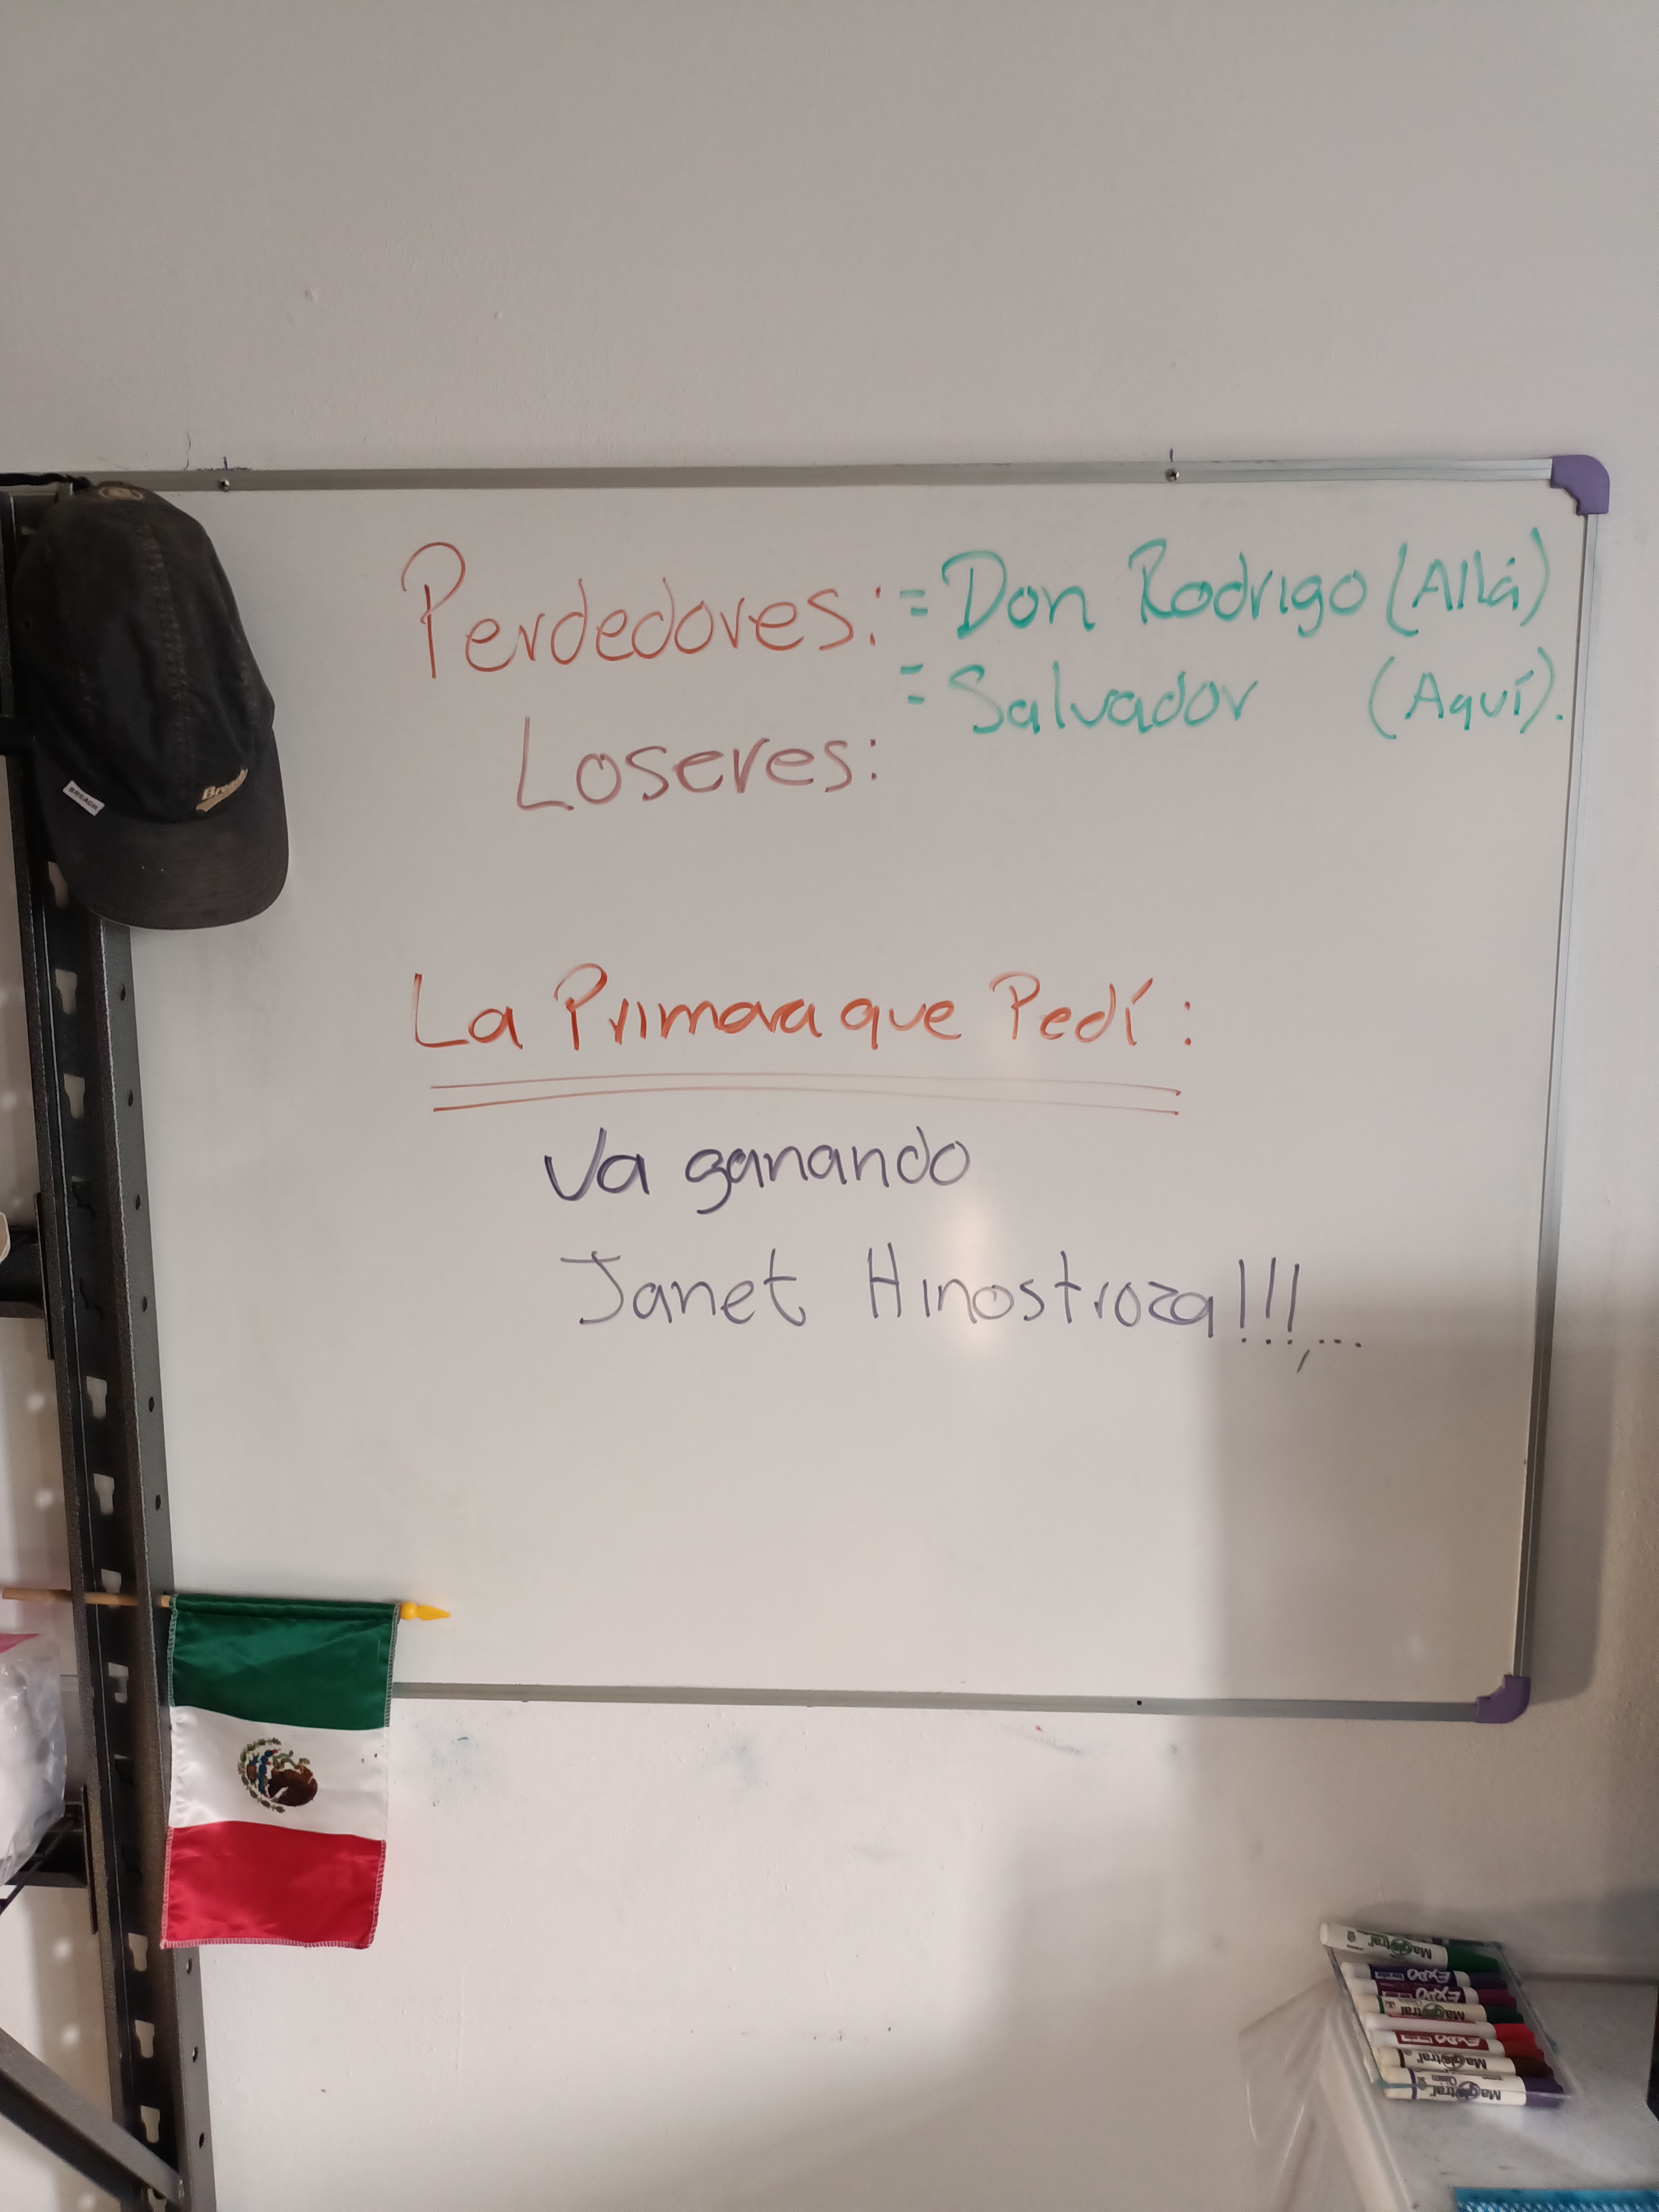 Perdedores: = Don Rodrigo (Allá)
= Salvador (Aquí).
Loseres:
La Primera que Pedí:
Va ganando
Janet Hinostroza!!!,...
BREACH
Magistral
EXPO
EXPO
Magistral
EXPO
Magistral
Magistral